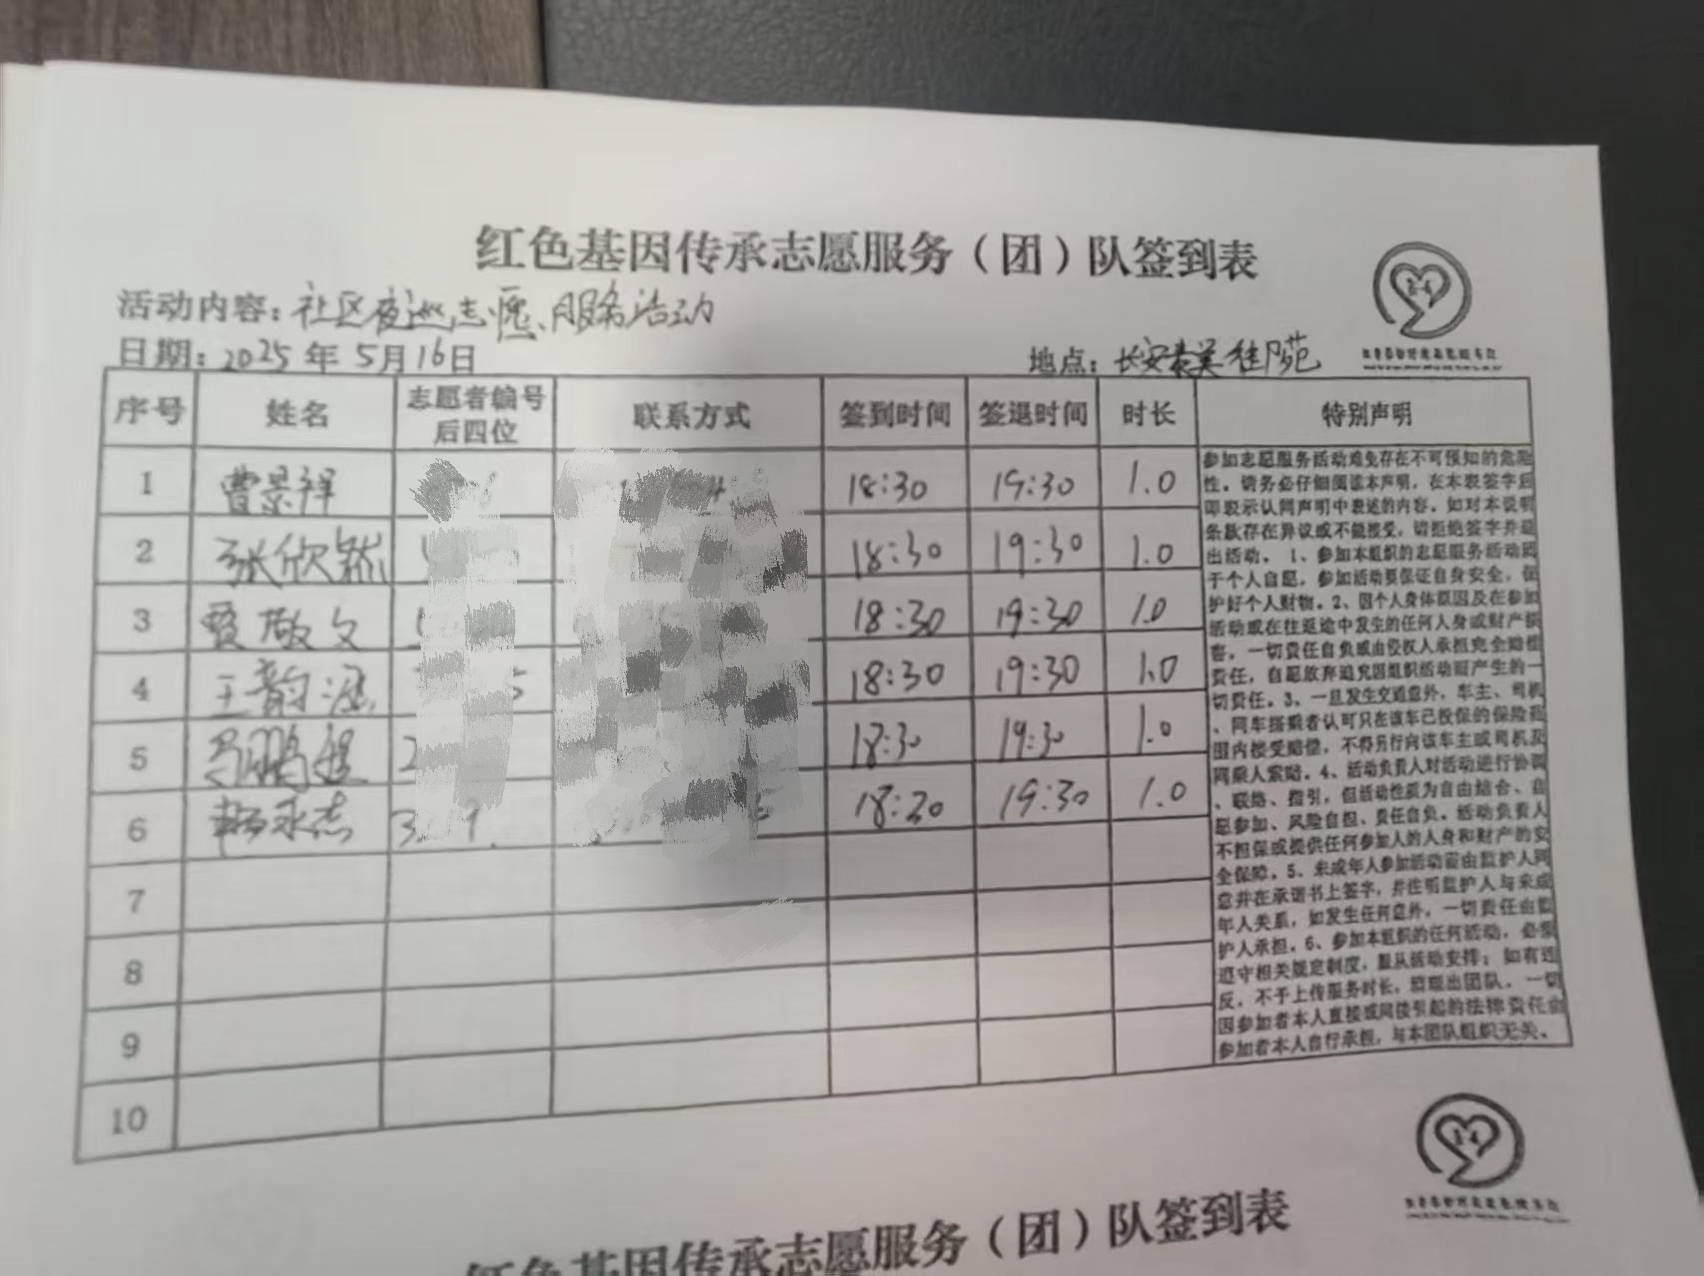 红色基因传承志愿服务（团）队签到表
活动内容：社区夜巡志愿服务活动
日期：2025年5月16日 地点：长安泰美佳苑
序号 姓名 志愿者编号后四位 联系方式 签到时间 签退时间 时长 特别声明
1 曹景祥 18:30 19:30 1.0
2 张欣 18:30 19:30 1.0
3 敬文 18:30 19:30 1.0
4 王韵涵 18:30 19:30 1.0
5 马鹏 18:30 19:30 1.0
6 杨永志 18:30 19:30 1.0
7
8
9
10
参加志愿服务活动难免存在不可预知的危险
性。请务必仔细阅读本声明，在本表签字后
即表示认同声明中表述的内容。如对本说明
条款存在异议或不能接受，请拒绝签字并退
出活动。1、参加本组织的志愿服务活动属
于个人自愿，参加活动要保证自身安全，保
护好个人财物。2、因个人身体原因及在参加
活动或在往返途中发生的任何人身或财产损
害，一切责任自负或由侵权人承担完全赔偿
责任，自愿放弃追究因组织活动而产生的一
切责任。3、一旦发生交通意外，车主、司机
、同车搭乘者认可只在该车已投保的保险范
围内接受赔偿，不得另行向该车主或司机及
同乘人索赔。4、活动负责人对活动进行协调
、联络、指引，但活动性质为自由结合、自
愿参加、风险自担、责任自负。活动负责人
不担保或提供任何参加人的人身和财产的安
全保障。5、未成年人参加活动需由监护人同
意并在承诺书上签字，并注明监护人与未成
年人关系，如发生任何意外，一切责任由监
护人承担。6、参加本组织的任何活动，必须
遵守相关规定制度，服从活动安排；如有违
反，不予上传服务时长，清退出团队。一切
因参加者本人直接或间接引起的法律责任由
参加者本人自行承担，与本团队组织无关。
红色基因传承志愿服务（团）队签到表